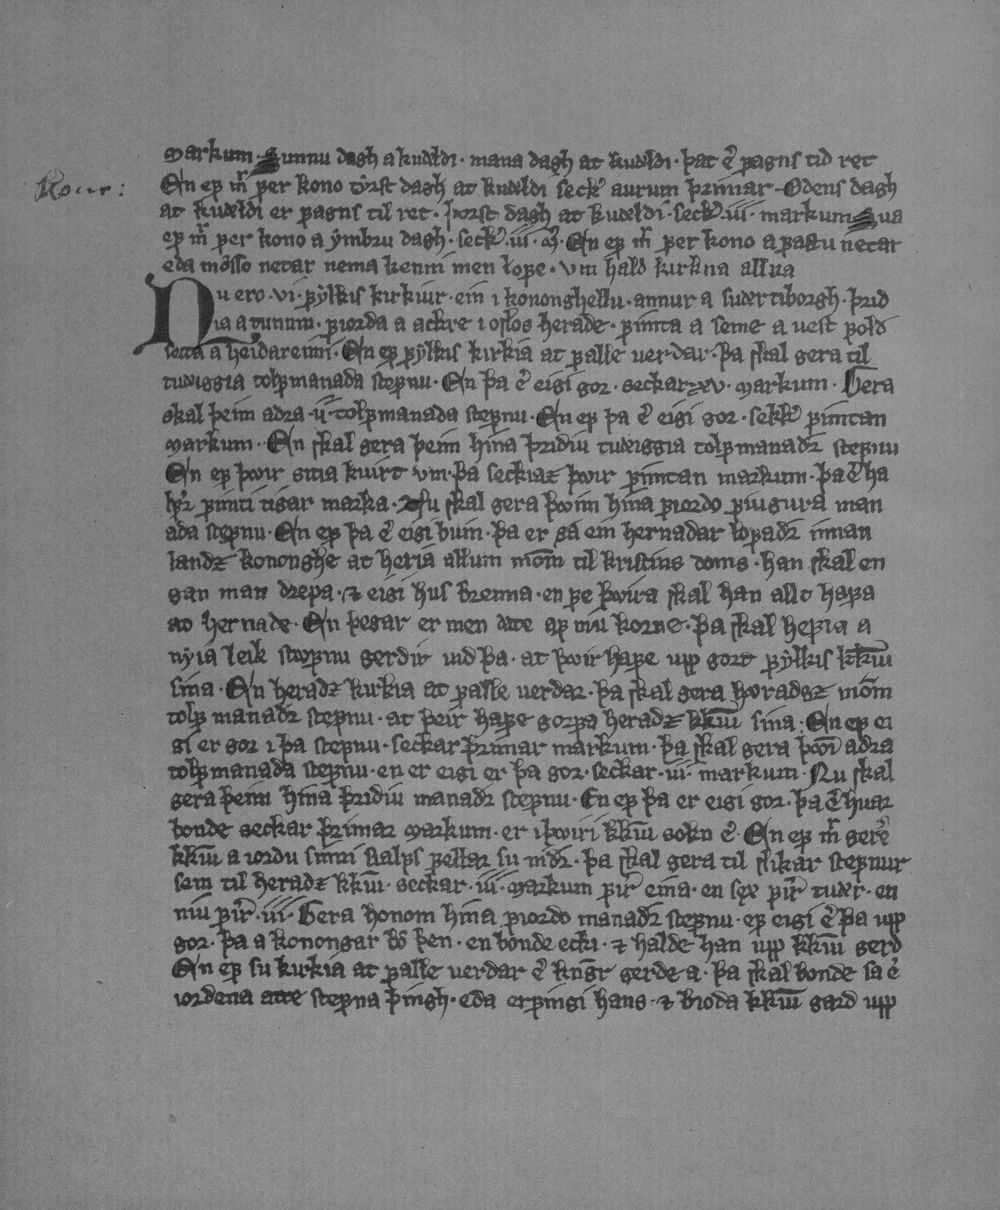 markum. Sunnu dagh a kueldi. mana dagh at kueldi. þat er ꝼagns tid ret
En eꝼ mr̄ ꝼer kono tyrst dagh at kueldi seckr aurum þrimar. Odens dagh
at kueldi er ꝼagns til ret. þorst dagh at kueldi. seckr. iii. markum Sua
eꝼ mr̄ ꝼer kono a ymbru dagh. seckr. iii. m. En eꝼ mr̄ ꝼer kono a ꝼastu netar
eda messo netar nema kenni men loꝼe. vm hald kirkna allra
Nu ero. vi. ꝼylkis kirkiur. ein i kononghellu. annur a suder tiborgh. þrid
ia a tunum. ꝼiorda a ackre i oslos herade. ꝼimta a seme a uest ꝼold
setta a heidareimi. En eꝼ ꝼylkis kirkia at ꝼalle uerdar. þa skal gera til
tueiggia tolꝼmanada steꝼnu. En þa er eigi gor. seckar xv. markum. Gera
skal þeim adra. ii. tolꝼmanada steꝼnu. En eꝼ þa er eigi gor. sekkr ꝼimtan
markum. En skal gera þeim hina þridiu tueiggia tolꝼmanadr steꝼnu
En eꝼ þeir sitia kuirt vm. þa seckiaz þeir ꝼimtan markum. þa er ha
lꝼr ꝼimti tigar marka. Nu skal gera þeim hina ꝼiordo ꝼiugura man
ada steꝼnu. En eꝼ þa er eigi buin. þa er sa ein hernadar loꝼadr innan
landz kononghe at heria allum mom̄ til kristins doms. han skal en
gan man drepa. ⁊ eigi hus brenna. en ꝼe þeira skal han allt haꝼa
at hernade. En þegar er men dette aꝼ niu korne. þa skal heꝼia a
nyia leik steꝼnu gerdir uid þa. at þeir haꝼe upp gort ꝼylkis kkiu
sina. En heradz kirkia at ꝼalle uerdar. þa skal gera heradz mom̄
tolꝼ manadr steꝼnu. at þeir haꝼe gorꝼa heradz kkiu sina. En eꝼ ei
gi er gor i þa steꝼnu. seckar þrimar markum. þa skal gera þei adra
tolꝼmanada steꝼnu. en er eigi er þa gor. seckar. iii. markum. Nu skal
gera þeim hina þridiu manadr steꝼnu. En eꝼ þa er eigi gor. þa er huar
bonde seckar þrimar markum. er i þeiri kkiu sokn er. En eꝼ mr̄ gerer
kkiu a iordu sinni sialꝼs ꝼellar su nidr. þa skal gera til slikar steꝼnur
sem til heradz kkiu. seckar. iii. markum ꝼir eina. en sex ꝼir tuer. en
niu ꝼir. iii. Gera honom hina ꝼiordo manadr steꝼnu. eꝼ eigi er þa upp
gor. þa a konongar bo þen. en bonde ecki. ⁊ halde han upp kkiu gerd
En eꝼ su kirkia at ꝼalle uerdar er kngr gerde a. þa skal bonde sa er
iordena atte steꝼna þingh. eda erꝼingi hans. ⁊ bioda kkiu gard upp